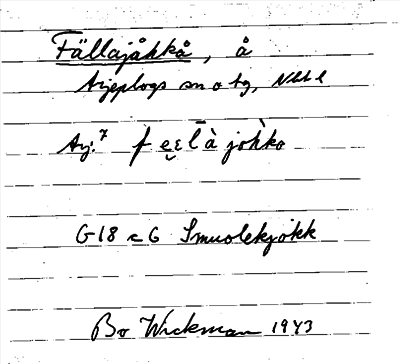 Fällajåkkå, å
Arjeplogs sn o tg, Nbt l
Arj.⁷ f e̮ɛl̄à jòk̀ko
G18 c G Smuolekjokk
Bo Wickman 1943